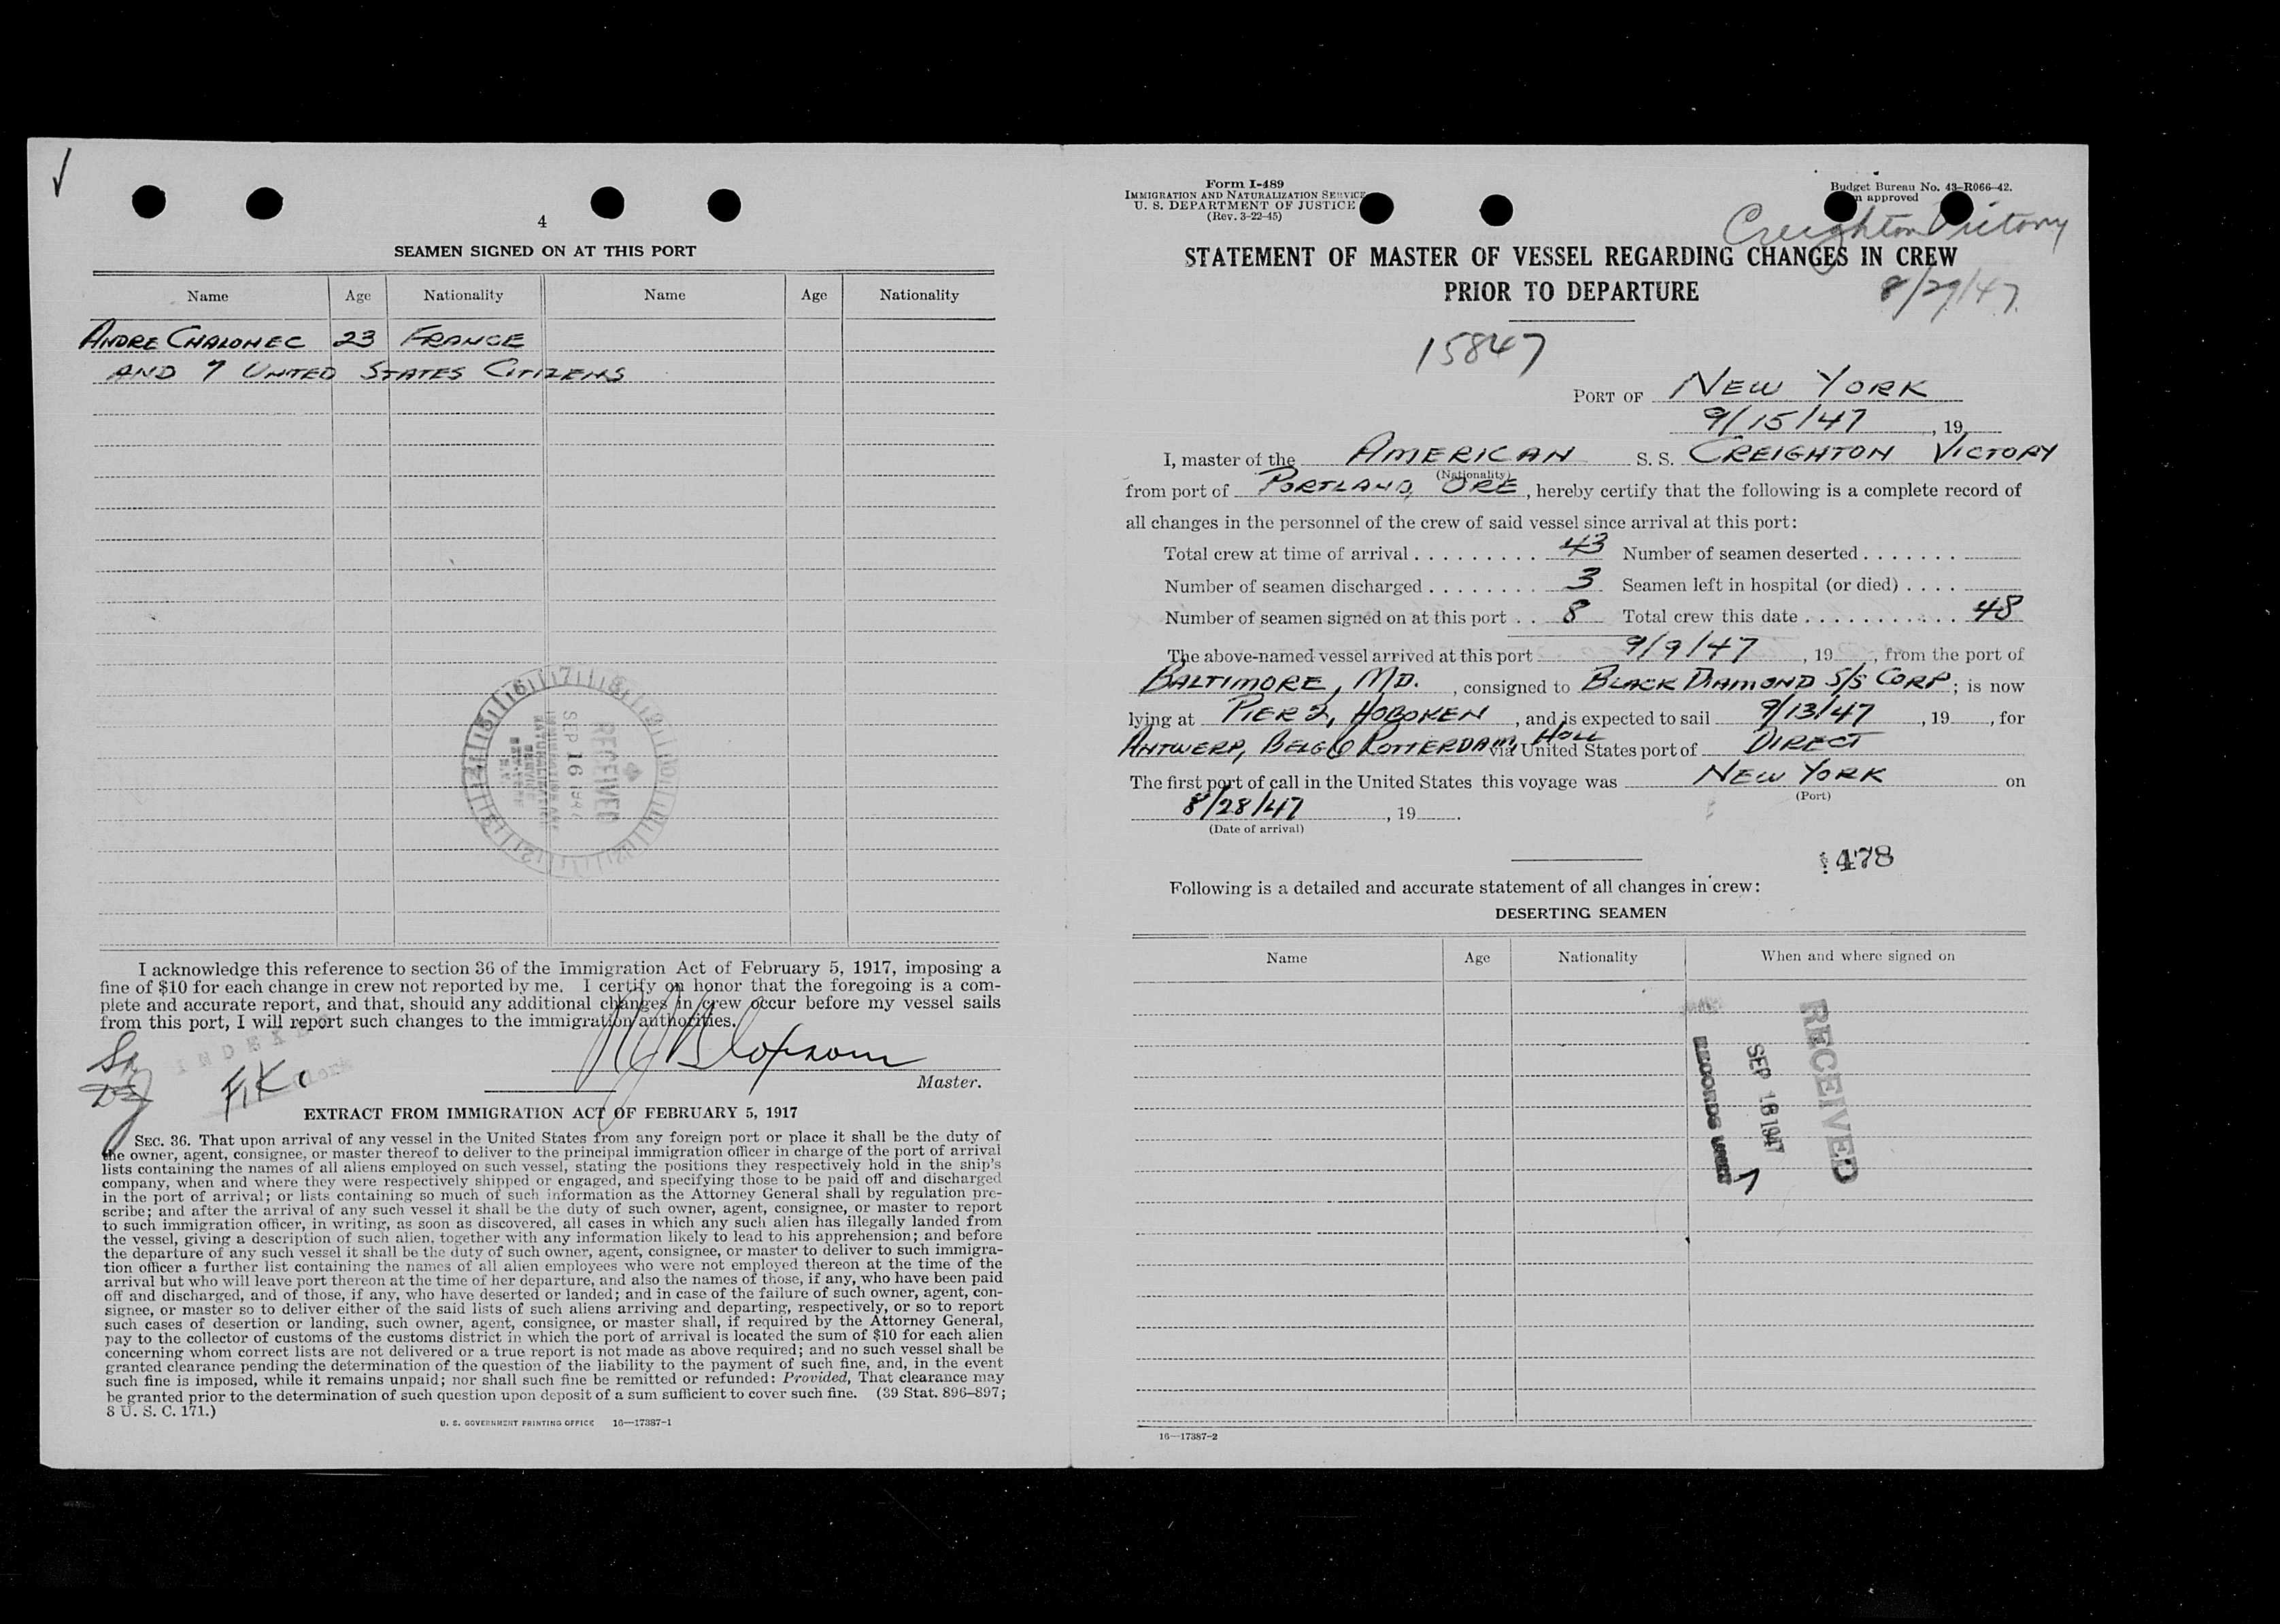 4
SEAMEN SIGNED ON AT THIS PORT
Name Age Nationality Name Age Nationality
ANDRE CHALONEC 23 FRANCE
AND 7 UNITED STATES CITIZENS
RECEIVED
SEP 16
I acknowledge this reference to section 36 of the Immigration Act of February 5, 1917, imposing a
fine of $10 for each change in crew not reported by me. I certify on honor that the foregoing is a com-
plete and accurate report, and that, should any additional changes in crew occur before my vessel sails
from this port, I will report such changes to the immigration authorities.
INDEXED
Master.
EXTRACT FROM IMMIGRATION ACT OF FEBRUARY 5, 1917
SEC. 36. That upon arrival of any vessel in the United States from any foreign port or place it shall be the duty of
the owner, agent, consignee, or master thereof to deliver to the principal immigration officer in charge of the port of arrival
lists containing the names of all aliens employed on such vessel, stating the positions they respectively hold in the ship's
company, when and where they were respectively shipped or engaged, and specifying those to be paid off and discharged
in the port of arrival; or lists containing so much of such information as the Attorney General shall by regulation pre-
scribe; and after the arrival of any such vessel it shall be the duty of such owner, agent, consignee, or master to report
to such immigration officer, in writing, as soon as discovered, all cases in which any such alien has illegally landed from
the vessel, giving a description of such alien, together with any information likely to lead to his apprehension; and before
the departure of any such vessel it shall be the duty of such owner, agent, consignee, or master to deliver to such immigra-
tion officer a further list containing the names of all alien employees who were not employed thereon at the time of the
arrival but who will leave port thereon at the time of her departure, and also the names of those, if any, who have been paid
off and discharged, and of those, if any, who have deserted or landed; and in case of the failure of such owner, agent, con-
signee, or master so to deliver either of the said lists of such aliens arriving and departing, respectively, or so to report
such cases of desertion or landing, such owner, agent, consignee, or master shall, if required by the Attorney General,
pay to the collector of customs of the customs district in which the port of arrival is located the sum of $10 for each alien
concerning whom correct lists are not delivered or a true report is not made as above required; and no such vessel shall be
granted clearance pending the determination of the question of the liability to the payment of such fine, and, in the event
such fine is imposed, while it remains unpaid; nor shall such fine be remitted or refunded: Provided, That clearance may
be granted prior to the determination of such question upon deposit of a sum sufficient to cover such fine. (39 Stat. 896–897;
8 U. S. C. 171.)
U. S. GOVERNMENT PRINTING OFFICE 16—17387-1
Form I-489
IMMIGRATION AND NATURALIZATION SERVICE
U. S. DEPARTMENT OF JUSTICE
(Rev. 3-22-45)
Budget Bureau No. 43-R066-42.
approved
Creighton Victory
8/29/47
STATEMENT OF MASTER OF VESSEL REGARDING CHANGES IN CREW
PRIOR TO DEPARTURE
15847
PORT OF NEW YORK
9/15/47, 19
I, master of the AMERICAN S. S. CREIGHTON VICTORY
(Nationality)
from port of PORTLAND, ORE, hereby certify that the following is a complete record of
all changes in the personnel of the crew of said vessel since arrival at this port:
Total crew at time of arrival . . . . . . . . . 43 Number of seamen deserted . . . . . . .
Number of seamen discharged . . . . . . . . 3 Seamen left in hospital (or died) . . . .
Number of seamen signed on at this port . . 8 Total crew this date . . . . . . . . . . . 48
The above-named vessel arrived at this port 9/9/47, 19, from the port of
BALTIMORE, MD., consigned to BLACK DIAMOND S/S CORP; is now
lying at PIER 2, HOBOKEN, and is expected to sail 9/13/47, 19, for
ANTWERP, BELG & ROTTERDAM, HOLL via United States port of DIRECT
The first port of call in the United States this voyage was NEW YORK on
(Port)
8/28/47, 19.
(Date of arrival)
478
Following is a detailed and accurate statement of all changes in crew:
DESERTING SEAMEN
Name Age Nationality When and where signed on
RECEIVED
SEP 16 1947
RECORDS
16—17387-2